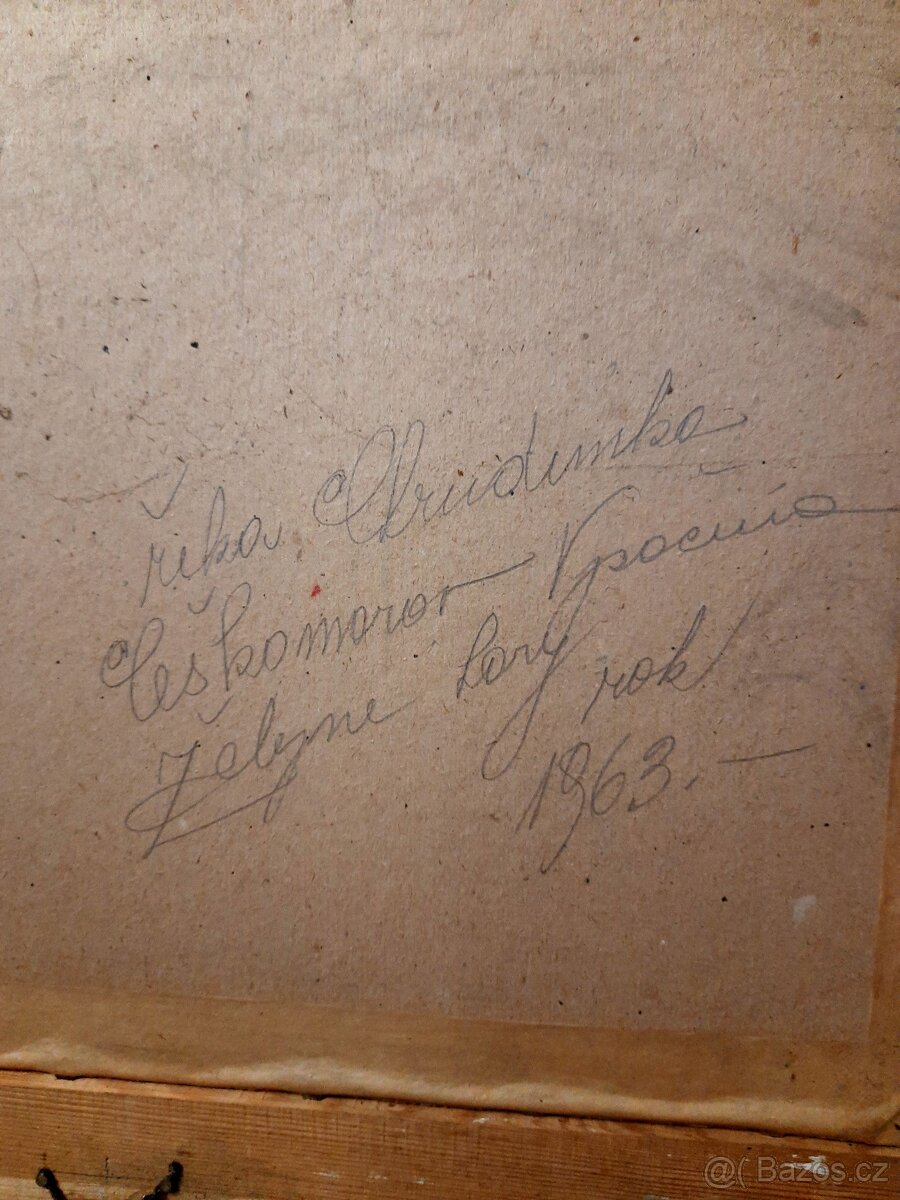 řeka Chrudimka
Českomorav Vysočina
Železne hory rok
1963.—
@( Bazos.cz